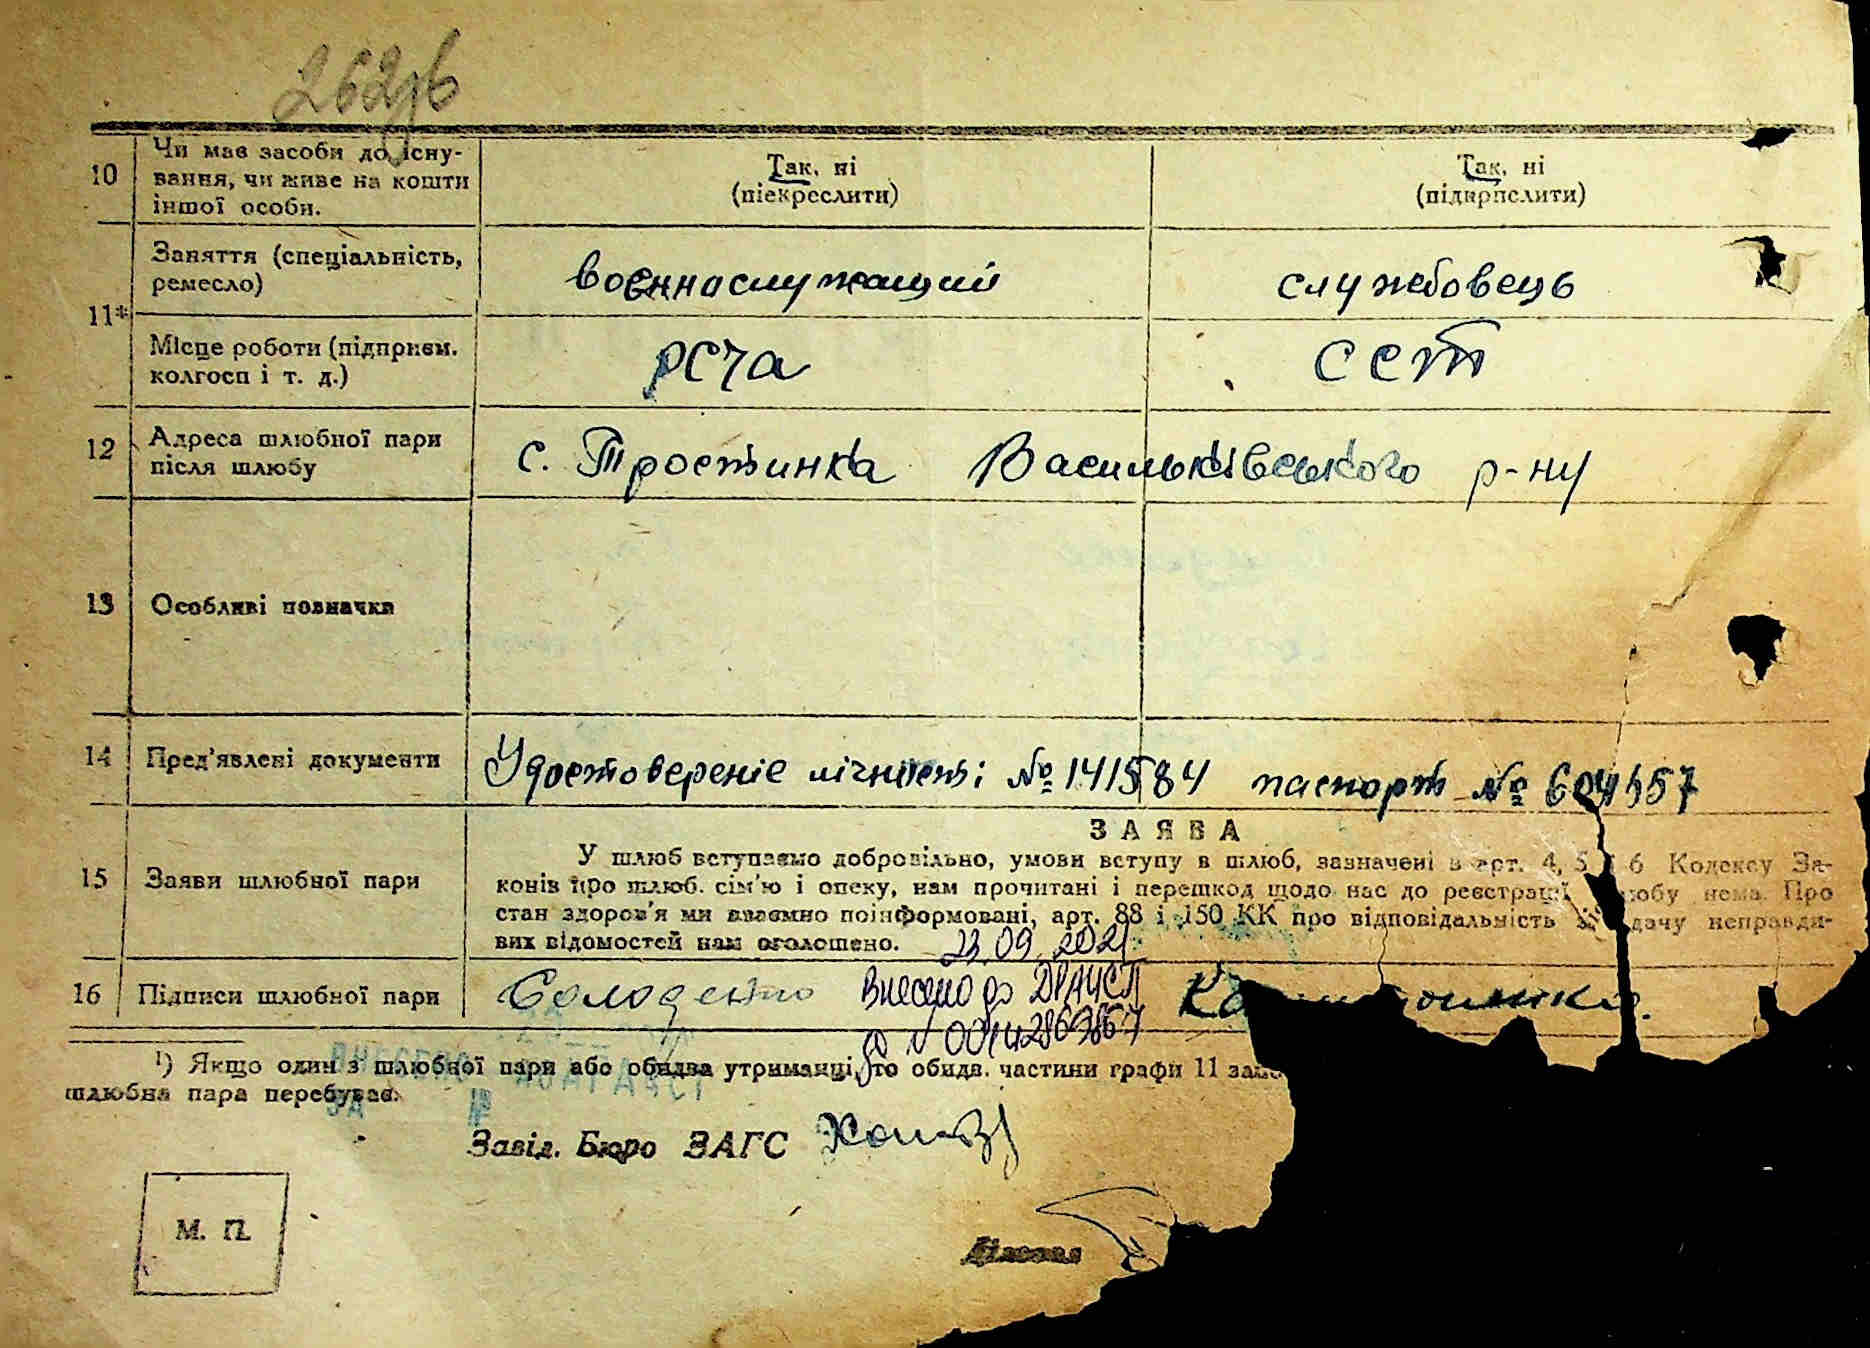 10 Чи має засоби до існу-
вання, чи живе на кошти
іншої особи.
Так, ні
(піекреслити)
Так, ні
(підкреслити)
11*
Заняття (спеціальність,
ремесло)
воєннаслужащий
службовець
Місце роботи (підприєм.
колгосп і т. д.)
РСЧА
ССТ
12 Адреса шлюбної пари
після шлюбу
с. Тростинка Васильківського р-ну
13 Особливі позначки
14 Пред'явлені документи
Удостовереніє лічності № 141584 паспорт №
15 Заяви шлюбної пари
ЗАЯВА
У шлюб вступаємо добровільно, умови вступу в шлюб, зазначені в арт. 4, 5 6 Кодексу За-
конів про шлюб. сім'ю і опеку, нам прочитані і перешкод щодо нас до реєстрації нема. Про
стан здоров'я ми взаємно поінформовані, арт. 88 і 150 КК про відповідальність неправди-
вих відомостей нам оголошено.
23.09.2021
Внесено до ДРАЦСГ
00142869867
16 Підписи шлюбної пари
Солоденко
¹) Якщо один з шлюбної пари або обидва утриманці, то обидв. частини графи 11
шлюбна пара перебуває.
Завід. Бюро ЗАГС
М. П.